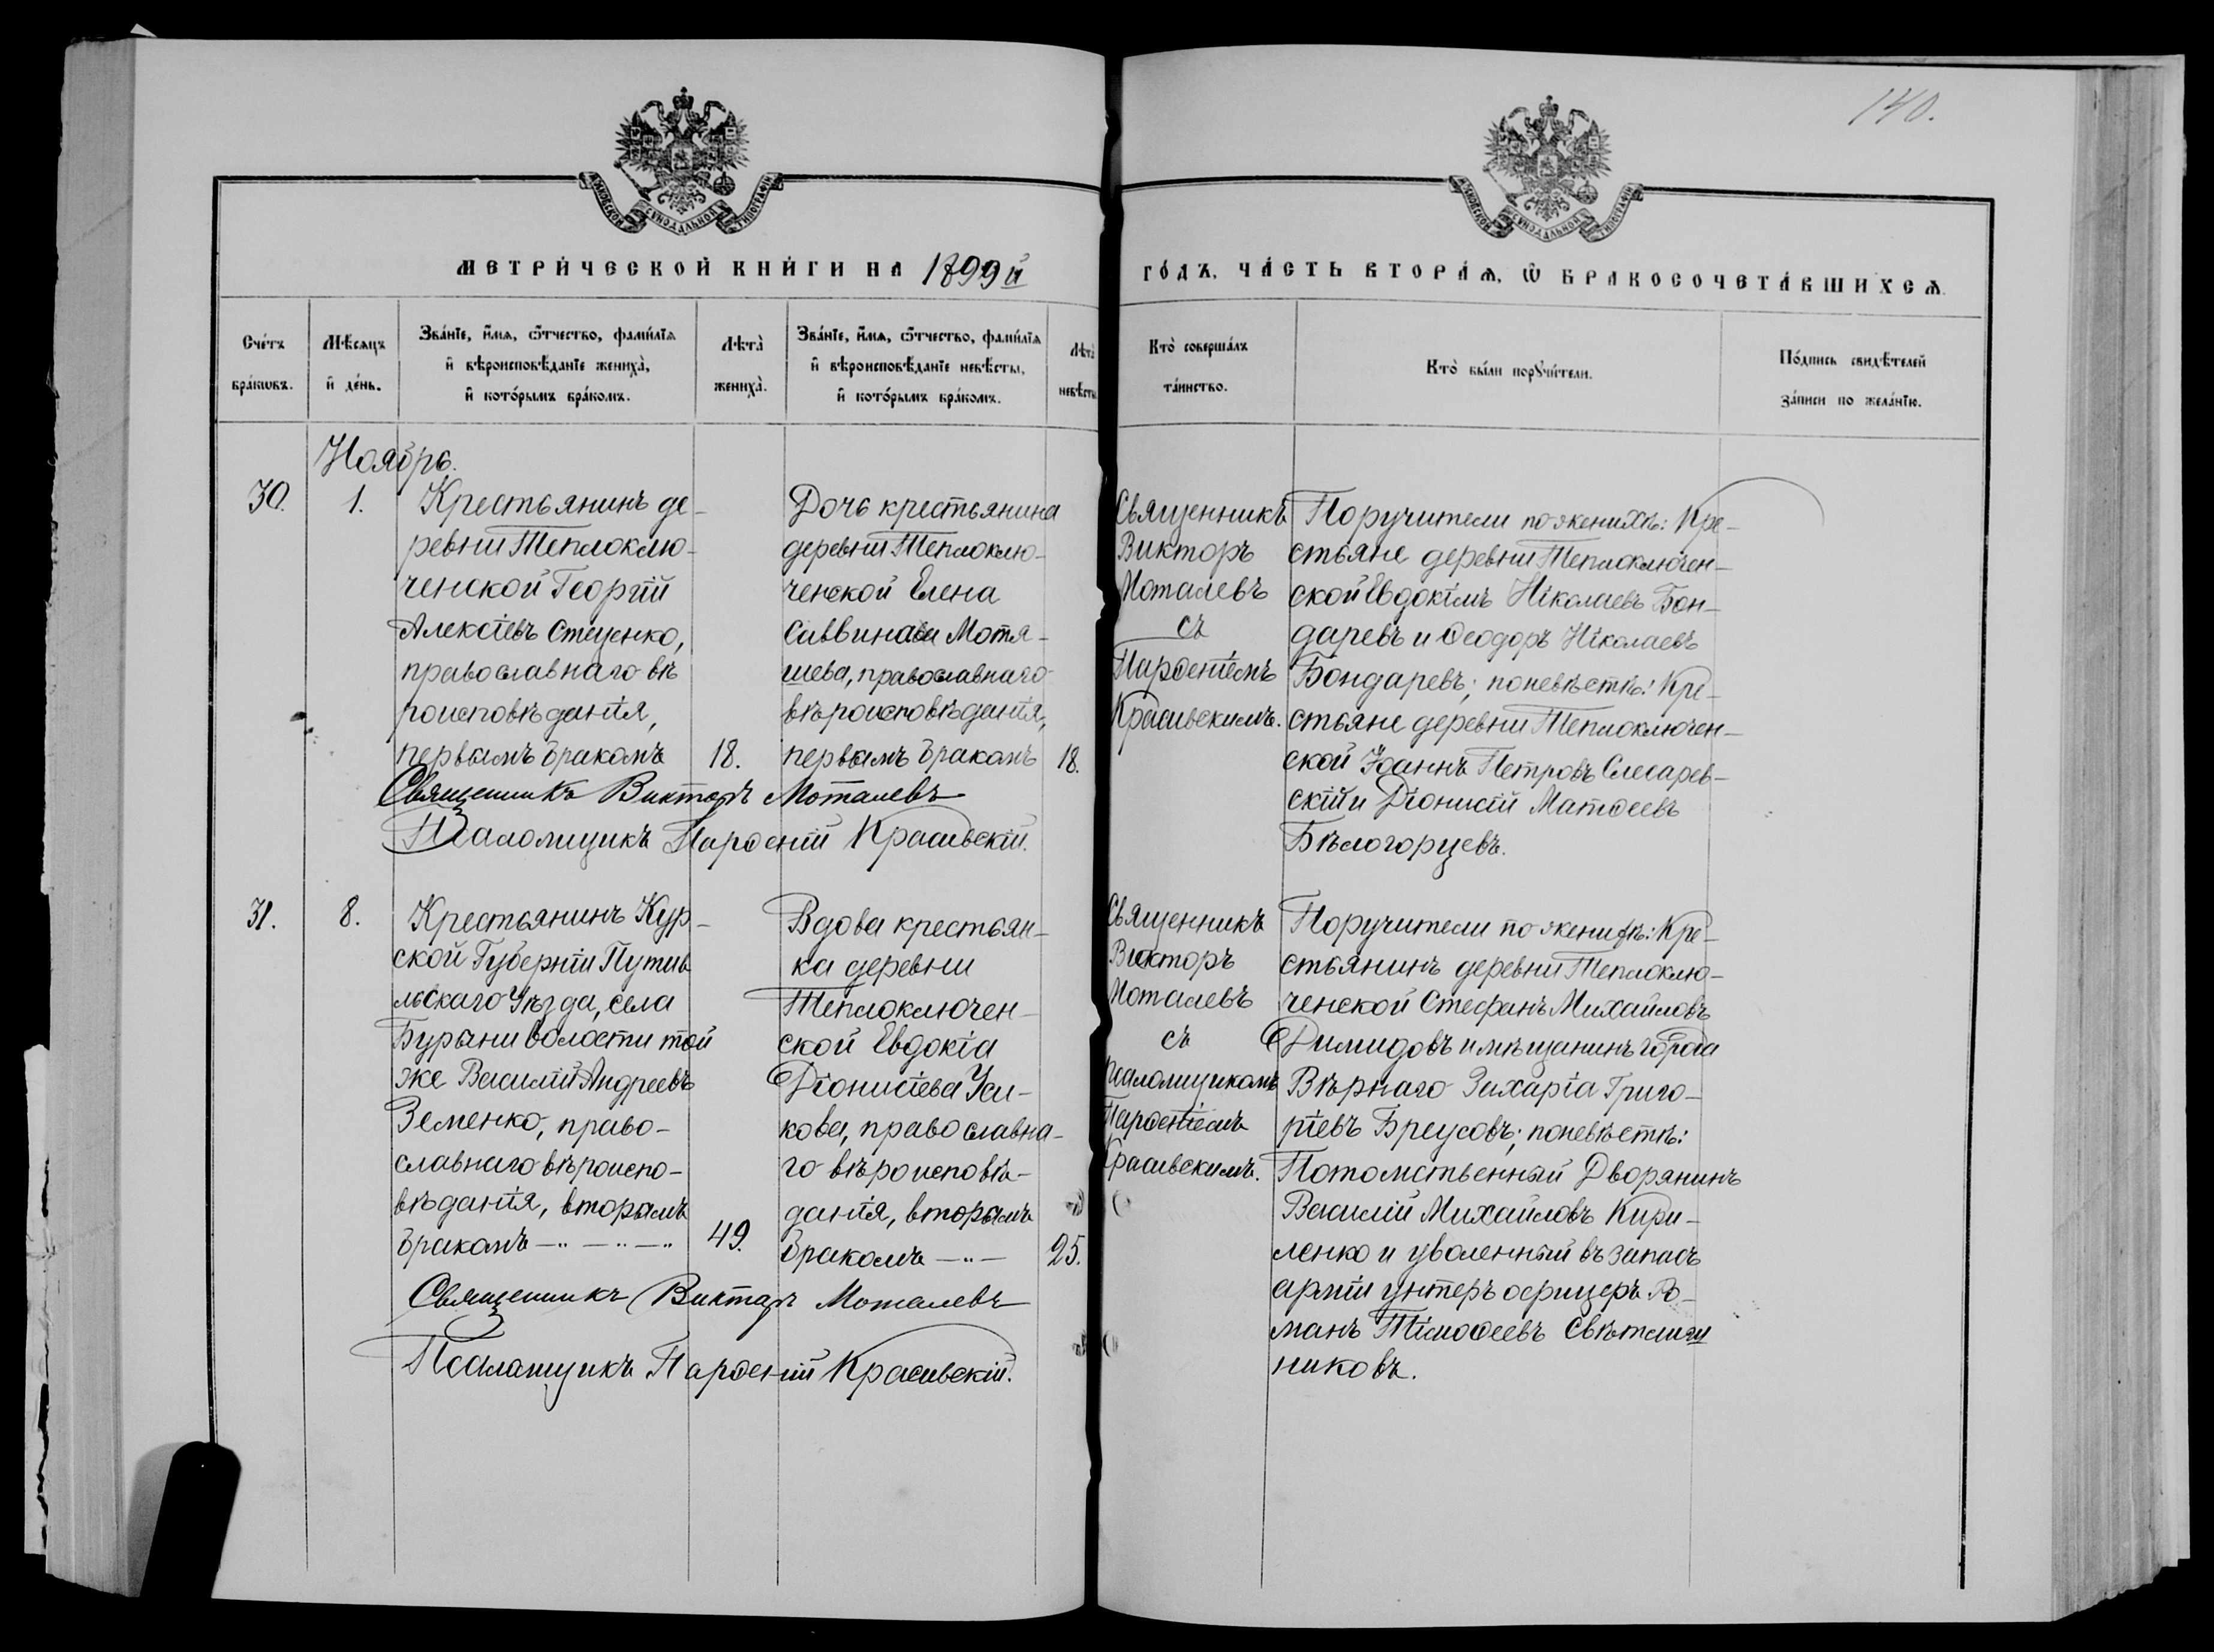 140.
МОСКОВСКОЙ СѴНОДАЛЬНОЙ ТИПОГРАФІИ
МОСКОВСКОЙ СѴНОДАЛЬНОЙ ТИПОГРАФІИ
МЕТРИ́ЧЕСКОЙ КНИ́ГИ НА 1899й
ГО́ДЪ, ЧА́СТЬ ВТОРА́Ѧ, Ѽ БРАКОСОЧЕТА́ВШИХСѦ.
Сче́тъ
бра́ковъ.
Мѣ́сѧцъ
и҆ де́нь.
Зва́нїе, и҆́мѧ, ѻ҆́тчество, фами́лїѧ
и҆ вѣроисповѣ́данїе жениха̀,
и҆ кото́рымъ бра́комъ.
Лѣта̀
жениха̀.
Зва́нїе, и҆́мѧ, ѻ҆́тчество, фами́лїѧ
и҆ вѣроисповѣ́данїе невѣ́сты,
и҆ кото́рымъ бра́комъ.
Лѣта̀
невѣ́сты
Кто̀ соверша́лъ
та́инство.
Кто̀ бы́ли порꙋчи́тели.
По́дпись свидѣ́телей
за́писи по жела́нїю.
Ноябрь.
30.
1.
Крестьянинъ де-
ревни Теплоклю-
ченской Георгій
Алексіевъ Стеценко,
православнаго вѣ
роисповѣданія,
первымъ бракомъ
18.
Дочь крестьянина
деревни Теплоклю-
ченской Елена
Саввина Мотя-
шева, православнаго
вѣроисповѣданія,
первымъ бракомъ
18.
Священникъ
Викторъ
Моталевъ
съ
Парѳеніемъ
Красивскимъ.
Поручители по женихѣ: Кре-
стьяне деревни Теплоключен-
ской Евдокімъ Ніколаевъ Бон-
даревъ и Ѳеодоръ Ніколаевъ
Бондаревъ; по невѣстѣ: Кре-
стьяне деревни Теплоключен-
ской Іоаннъ Петровъ Слесарев-
скій и Діонисій Матѳеевъ
Бѣлогорцевъ.
Священникъ Викторъ Моталевъ
Псаломщикъ Парѳеній Красивскій.
31.
8.
Крестьянинъ Кур-
ской Губерніи Путив
льскаго Уѣзда, села
Бурыни волости той
же Василій Андреевъ
Земенко, право-
славнаго вѣроиспо-
вѣданія, вторымъ
бракомъ —„—„—„
49.
Вдова крестьян-
ка деревни
Теплоключен-
ской Евдокіа
Діонисіева Уси-
кова, православна-
го вѣроисповѣ-
данія, вторымъ
бракомъ —„—
25.
Священникъ
Викторъ
Моталевъ
съ
Псаломщикомъ
Парѳеніемъ
Красивскимъ.
Поручители по женихѣ: Кре-
стьянинъ деревни Теплоклю-
ченской Стефанъ Михайловъ
Димидовъ и мѣщанинъ города
Вѣрнаго Захаріа Григо-
ріевъ Бреусовъ; по невѣстѣ:
Потомственный Дворянинъ
Василій Михайловъ Кири-
ленко и уволенный въ запасъ
арміи унтеръ офицеръ Ро-
манъ Тімоѳеевъ Свѣтлич
никовъ.
Священникъ Викторъ Моталевъ
Псаломщикъ Парѳеній Красивскій.